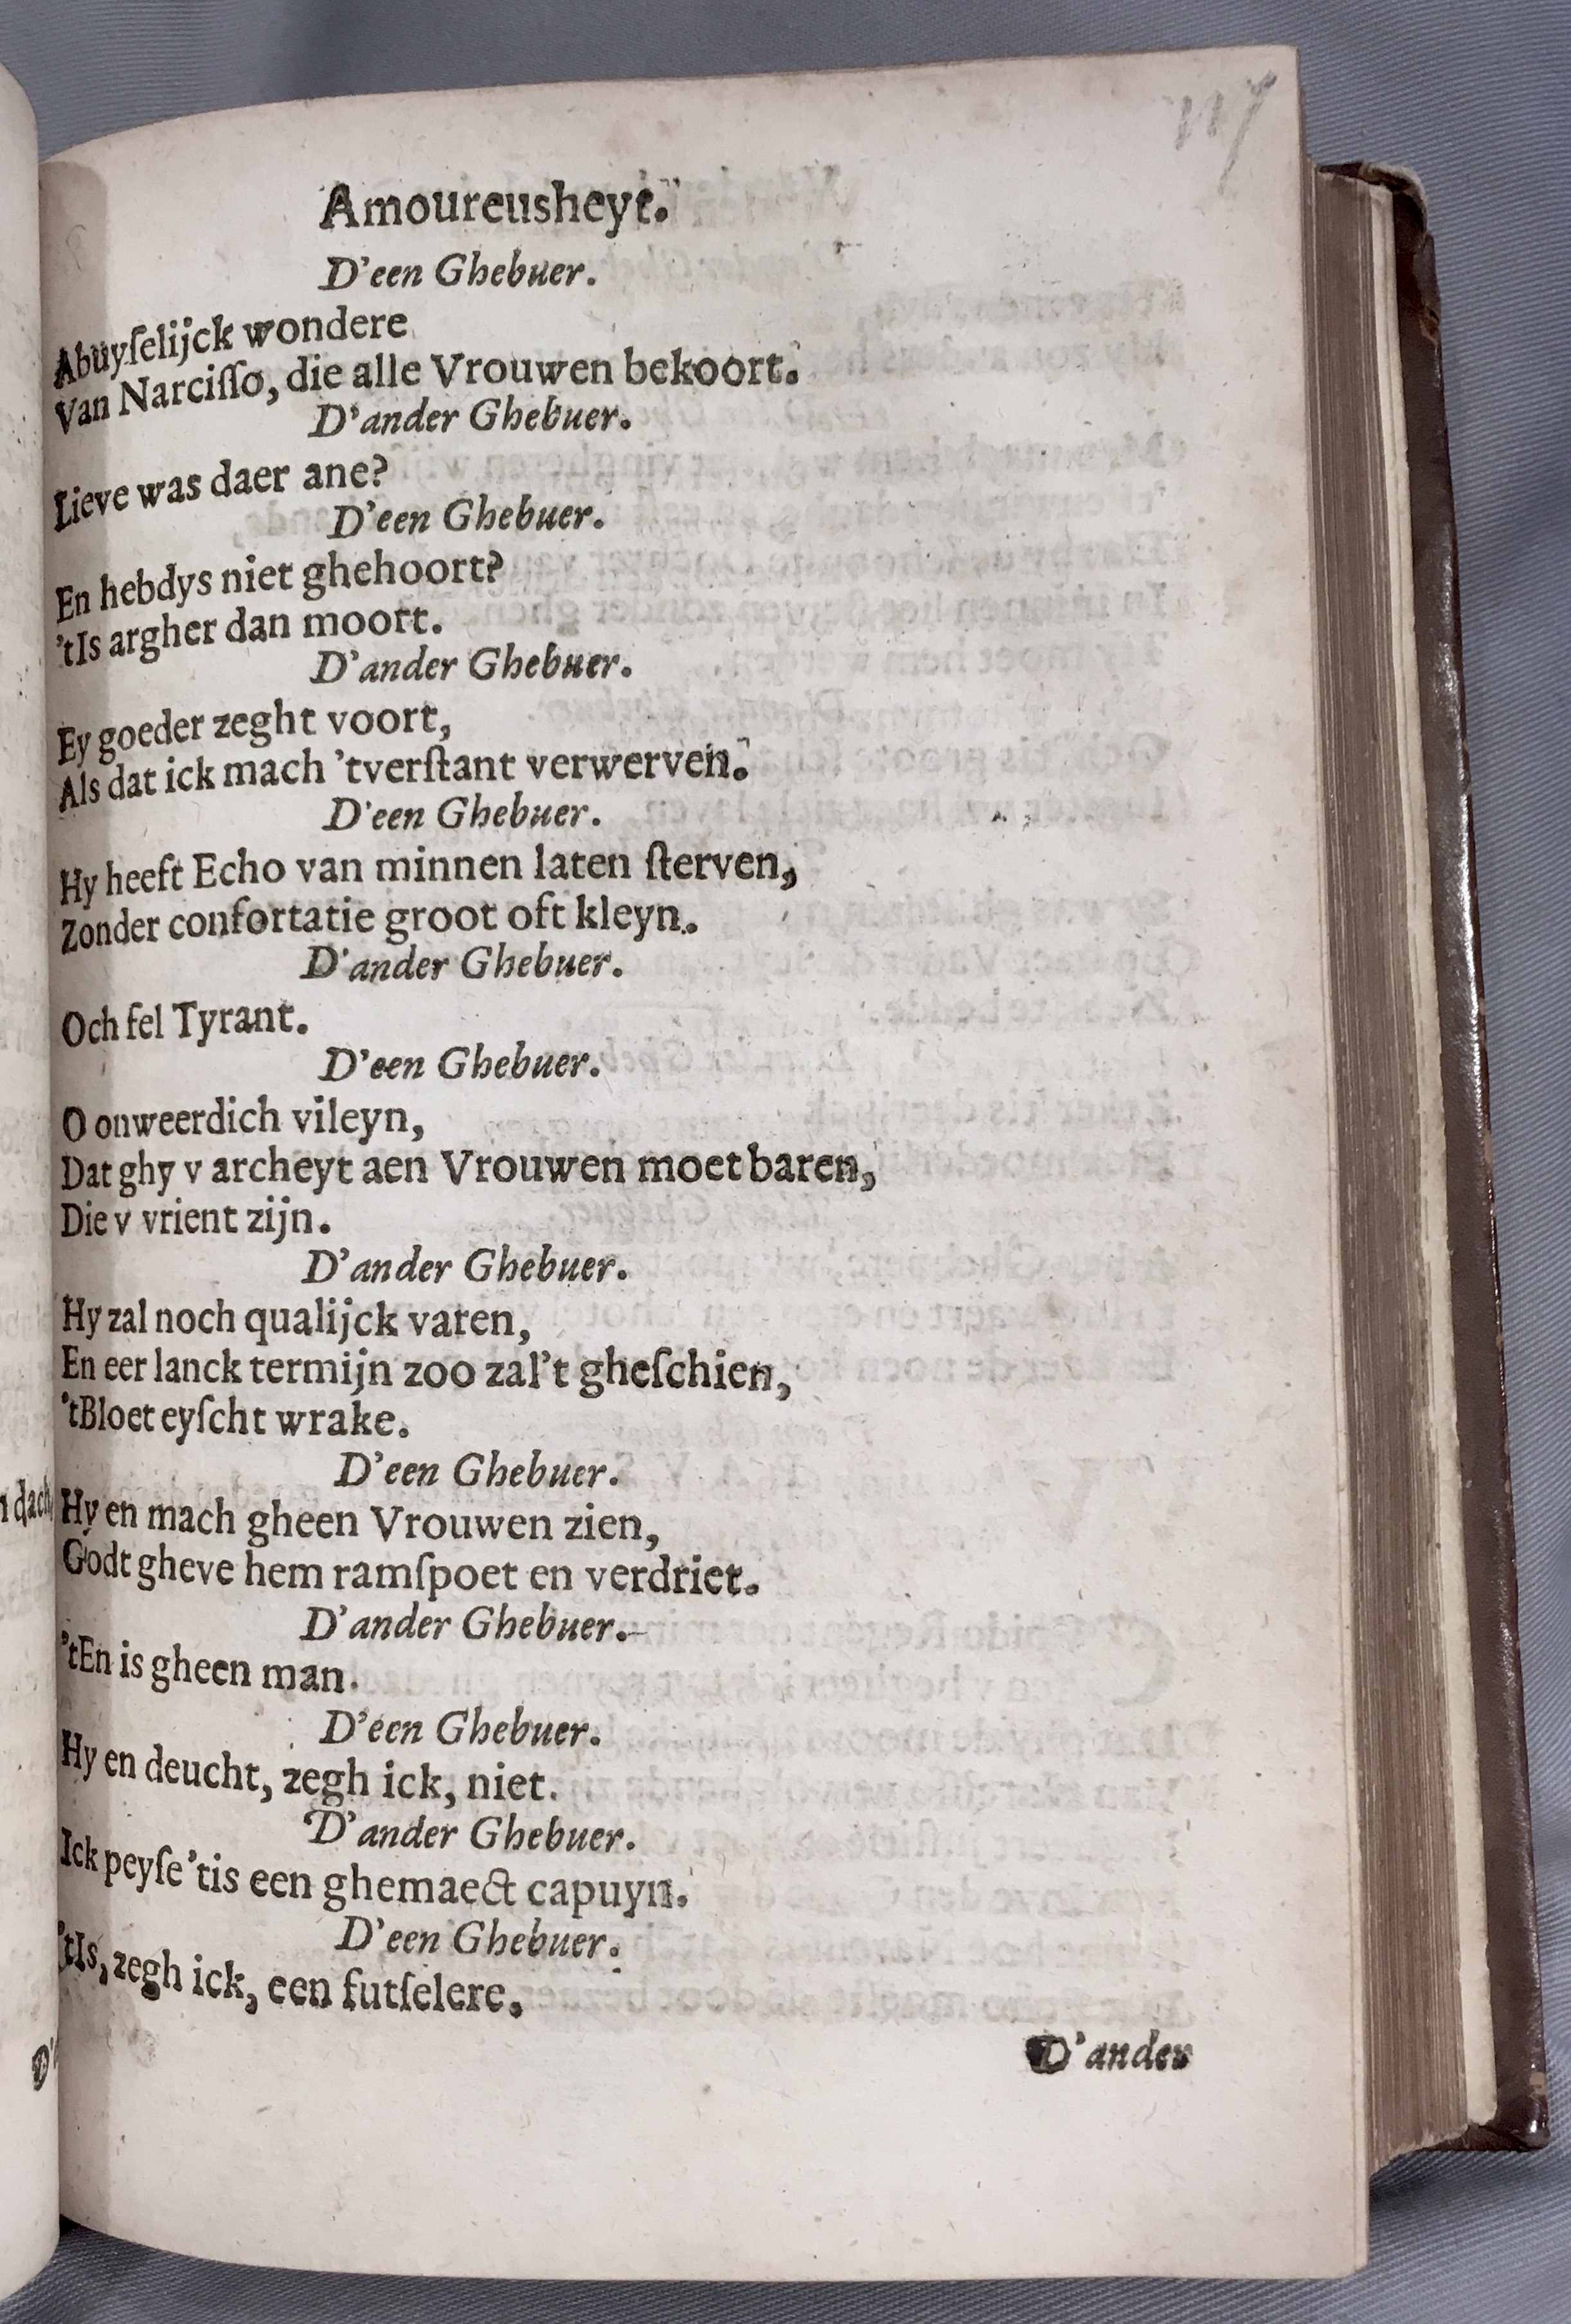 117
Amoureusheyt.
D'een Ghebuer.
Abuyſelijck wondere
Van Narciſſo, die alle Vrouwen bekoort.
D'ander Ghebuer.
Lieve was daer ane?
D'een Ghebuer.
En hebdys niet ghehoort?
'tIs argher dan moort.
D'ander Ghebuer.
Ey goeder zeght voort,
Als dat ick mach 'tverſtant verwerven.
D'een Ghebuer.
Hy heeft Echo van minnen laten ſterven,
Zonder confortatie groot oft kleyn.
D'ander Ghebuer.
Och fel Tyrant.
D'een Ghebuer.
O onweerdich vileyn,
Dat ghy v archeyt aen Vrouwen moet baren,
Die v vrient zijn.
D'ander Ghebuer.
Hy zal noch qualijck varen,
En eer lanck termijn zoo zal't gheſchien,
'tBloet eyſcht wrake.
D'een Ghebuer.
Hy en mach gheen Vrouwen zien,
Godt gheve hem ramſpoet en verdriet.
D'ander Ghebuer.
'tEn is gheen man.
D'een Ghebuer.
Hy en deucht, zegh ick, niet.
D'ander Ghebuer.
Ick peyſe 'tis een ghemaect capuyn.
D'een Ghebuer.
'tIs, zegh ick, een futſelere,
D'ander